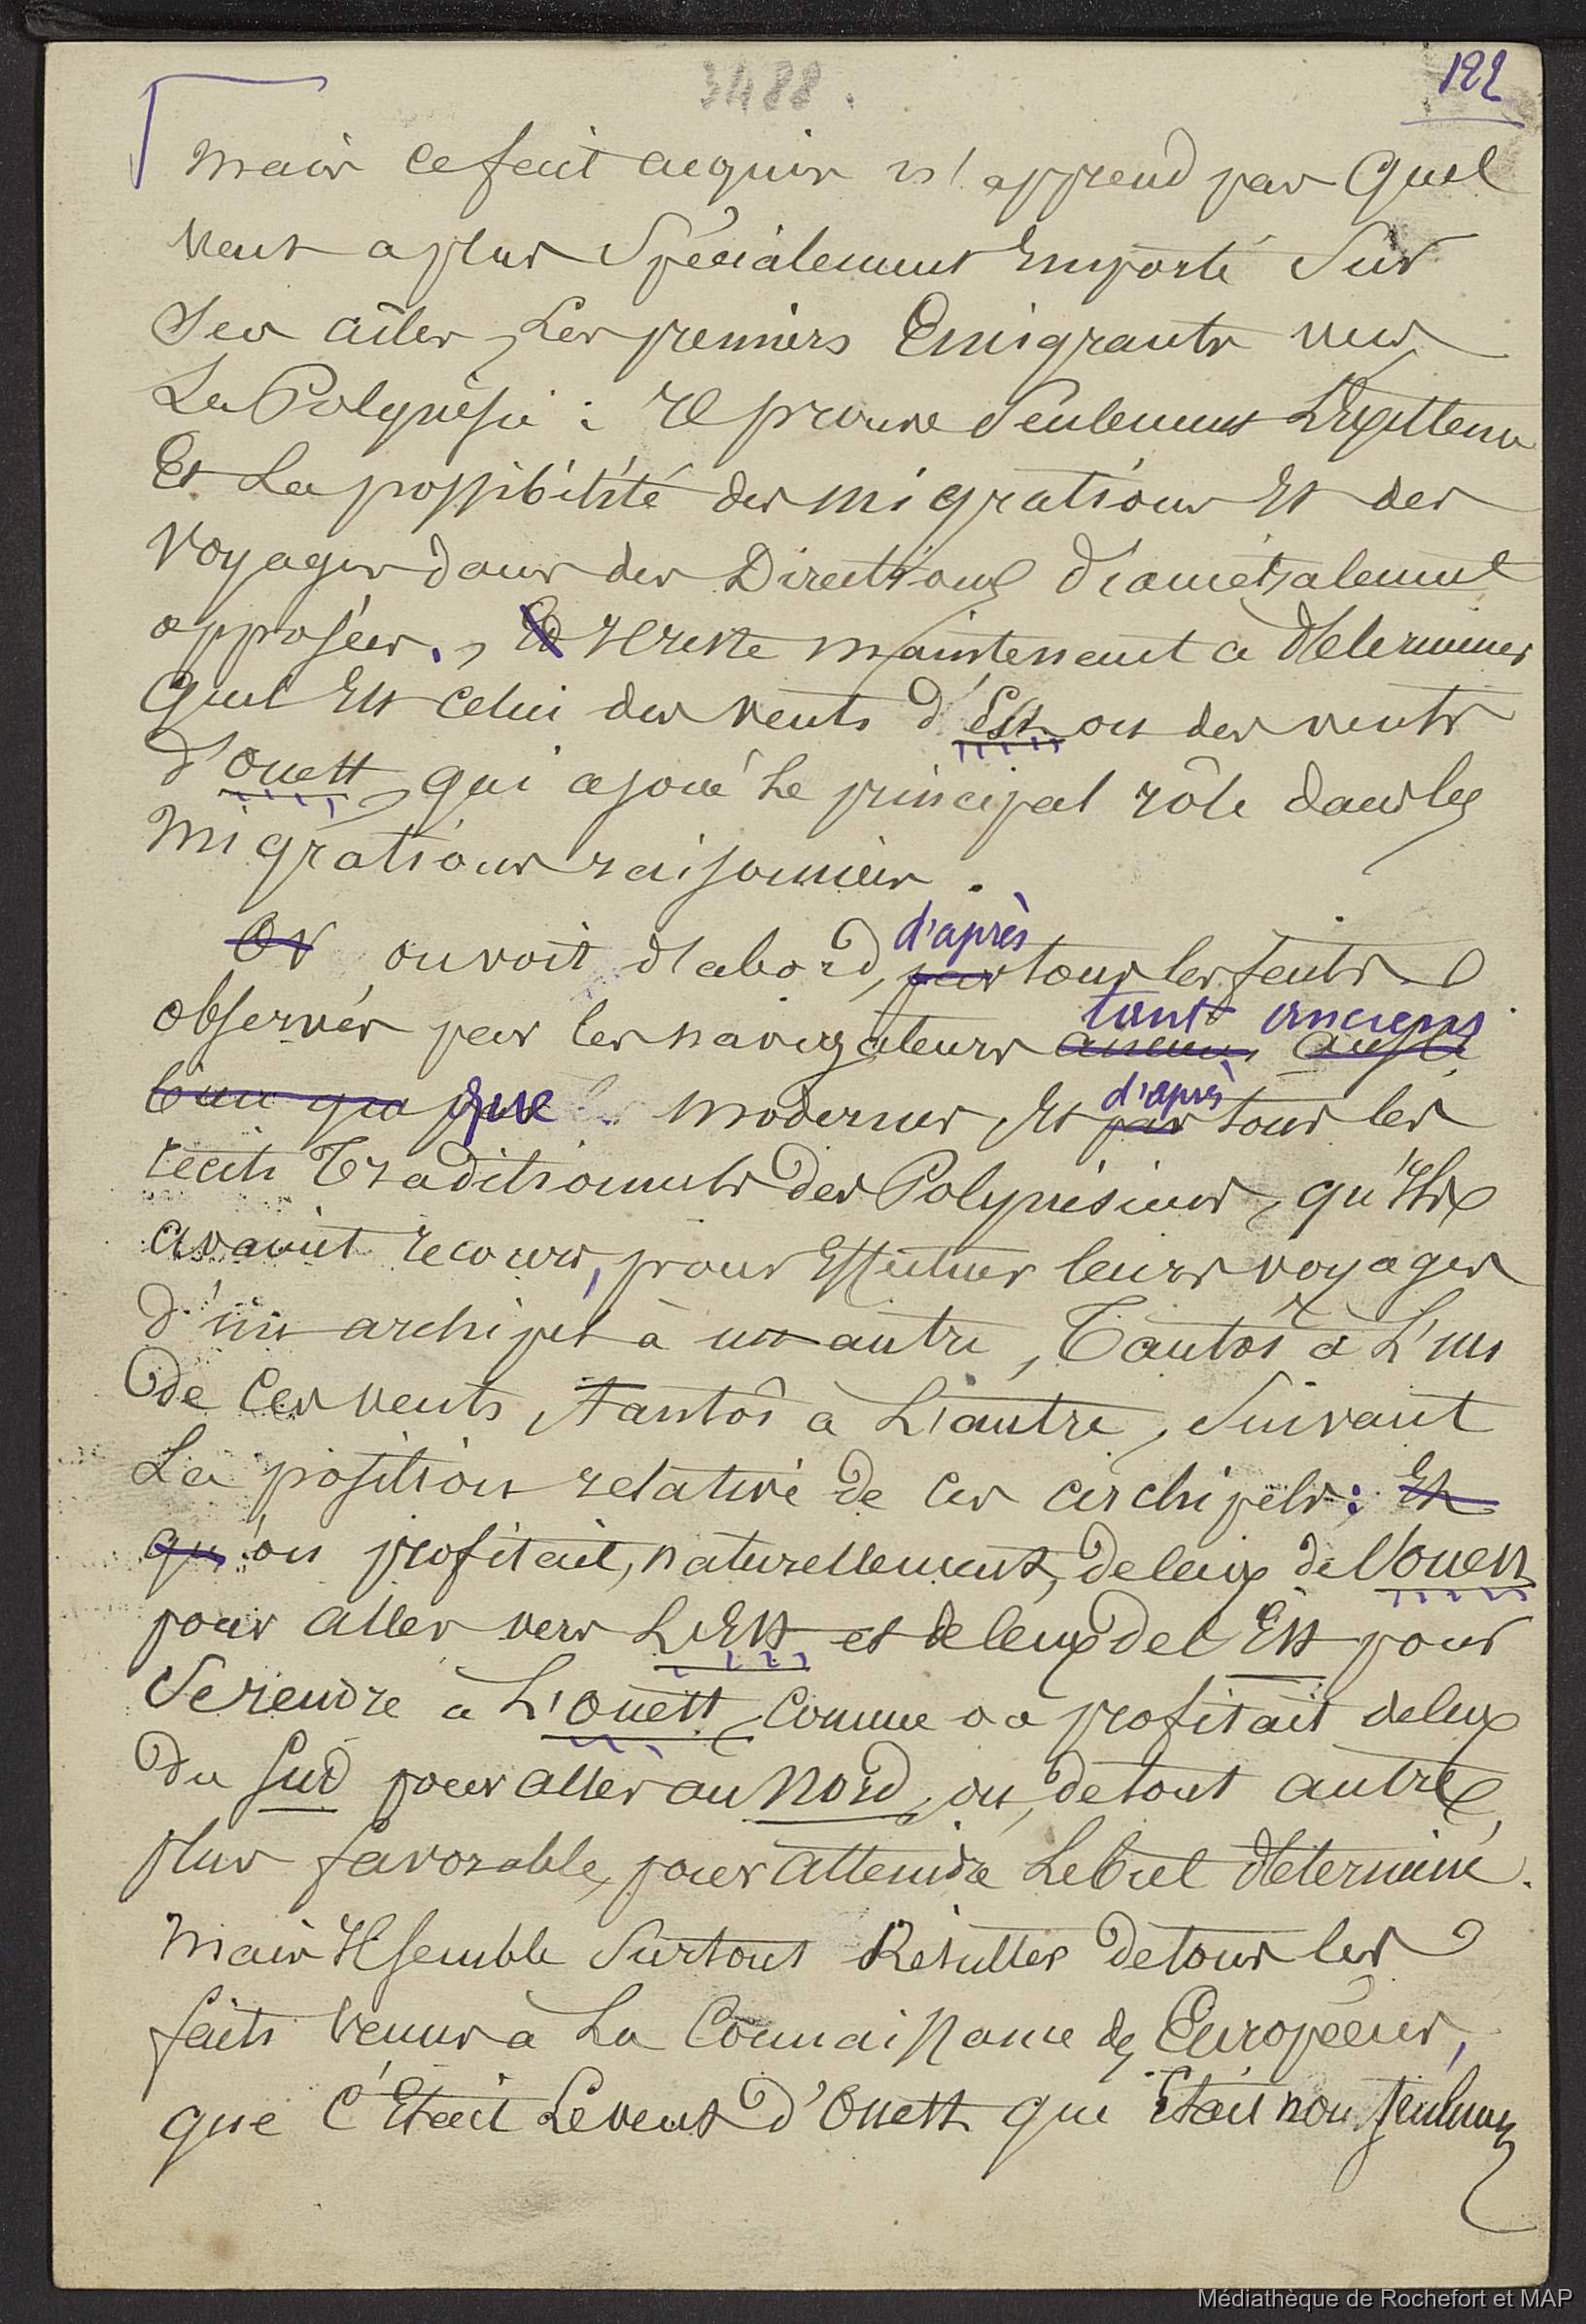 3488.
122
Mais ce fait acquis n'apprend pas quel
vent a plus spécialement emporté sur
ses ailes, les premiers Emigrants vers
La Polynésie : il prouve seulement L'Existence
Et La possibilité des migrations Et des
voyages dans des Directions diamétralement
opposées., Et Il reste maintenant à déterminer
quel Est celui des vents d'Est ou des vents
d'ouest, qui a joué Le principal rôle dans les
Migrations raisonnées.
Or on voit d'abord, par d'après tous les faits
observés par les navigateurs anciens aussi tant anciens
bien que par que modernes, Et par d'après tous les
récits Traditionnels des Polynésiens, qu'Ils
avaient recours, pour Effectuer leurs voyages
d'un archipel à un autre, Tantôt à L'un
de ces vents, tantôt à L'autre, suivant
La position relative de ces archipels : Et
qu'on profitait, naturellement, de ceux de l'ouest
pour aller vers L'Est et de ceux de l'Est pour
se rendre à L'ouest, comme on profitait de ceux
du Sud pour aller au Nord, ou, de tout autre,
plus favorable, pour atteindre Le but déterminé.
Mais Il semble surtout Résulter de tous les
faits venus à La Connaissance des Européens,
que C'Etait Le vent d'Ouest qui Etait non seulement
Médiathèque de Rochefort et MAP